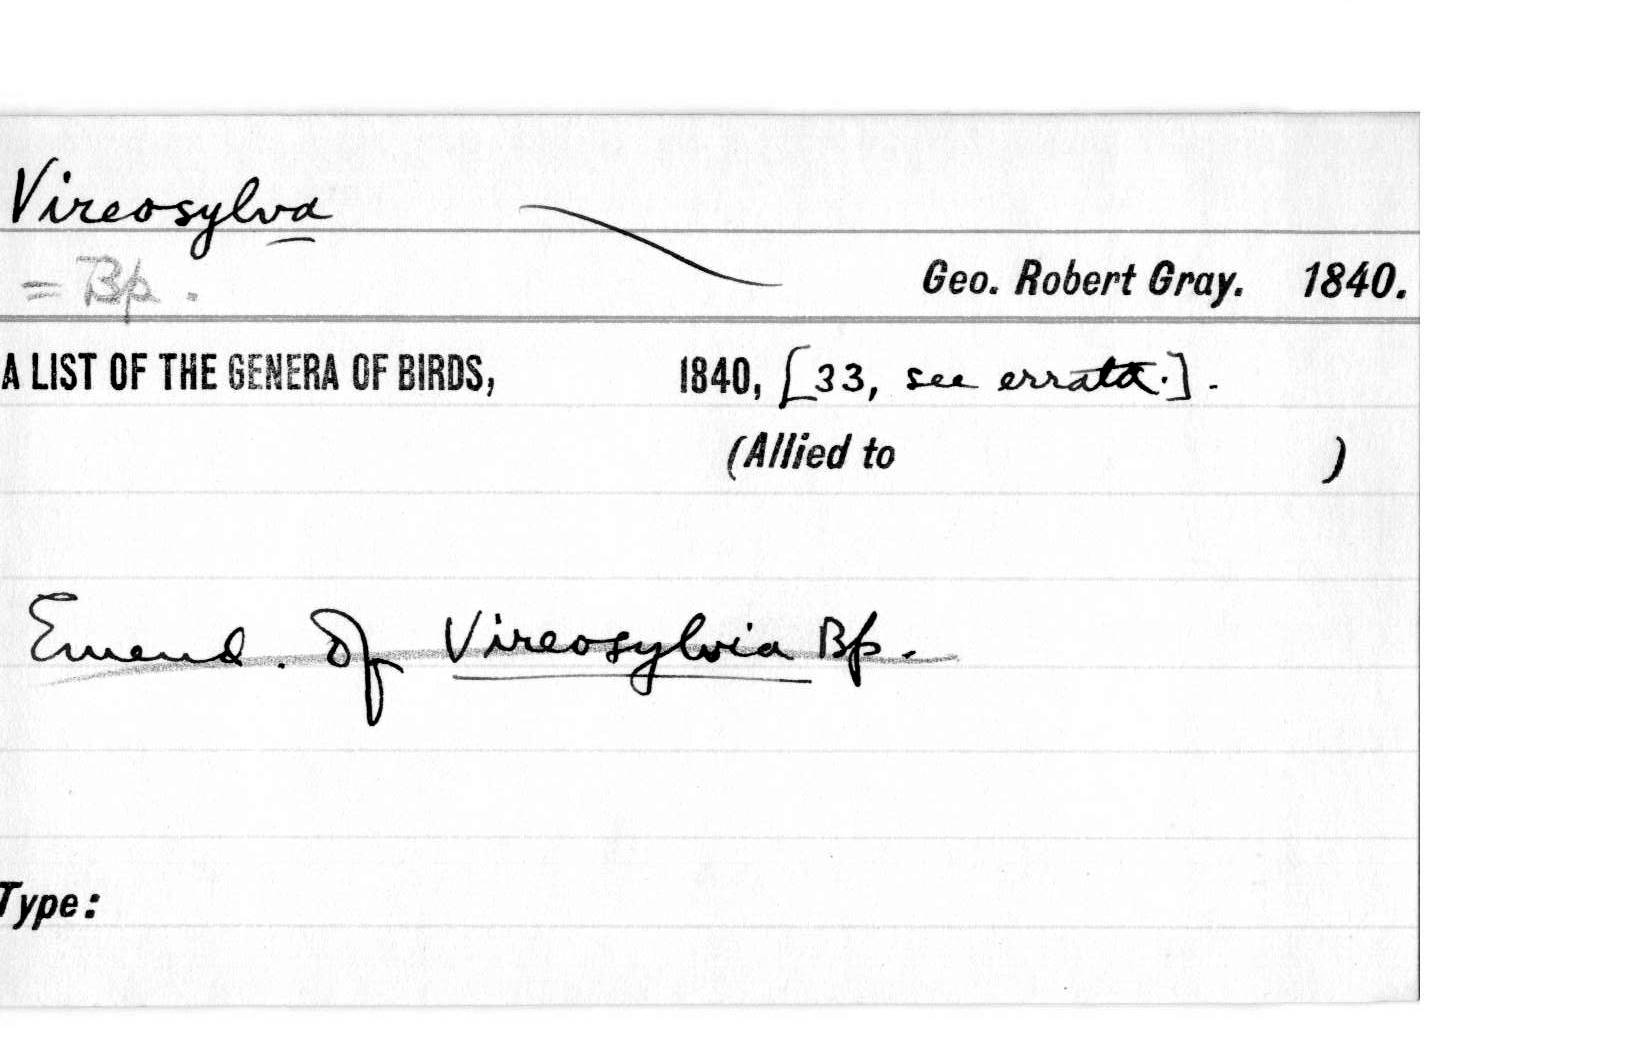 Vireosylva
= Bp. Geo. Robert Gray. 1840.
A LIST OF THE GENERA OF BIRDS, 1840, [33, see errata.].
(Allied to )
Emend. of Vireosylvia Bp.
Type: